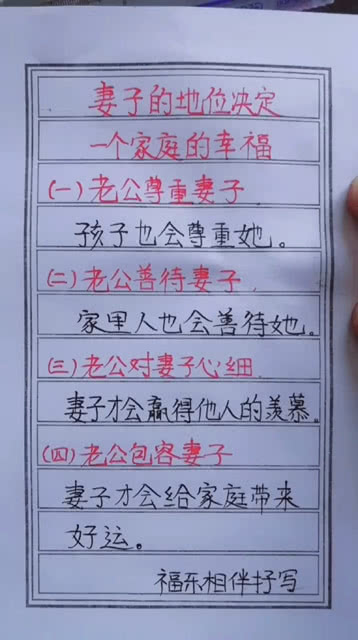 妻子的地位决定
一个家庭的幸福
(一)老公尊重妻子
孩子也会尊重她。
(二)老公善待妻子
家里人也会善待她。
(三)老公对妻子心细
妻子才会赢得他人的羡慕。
(四)老公包容妻子
妻子才会给家庭带来
好运。
福乐相伴抒写